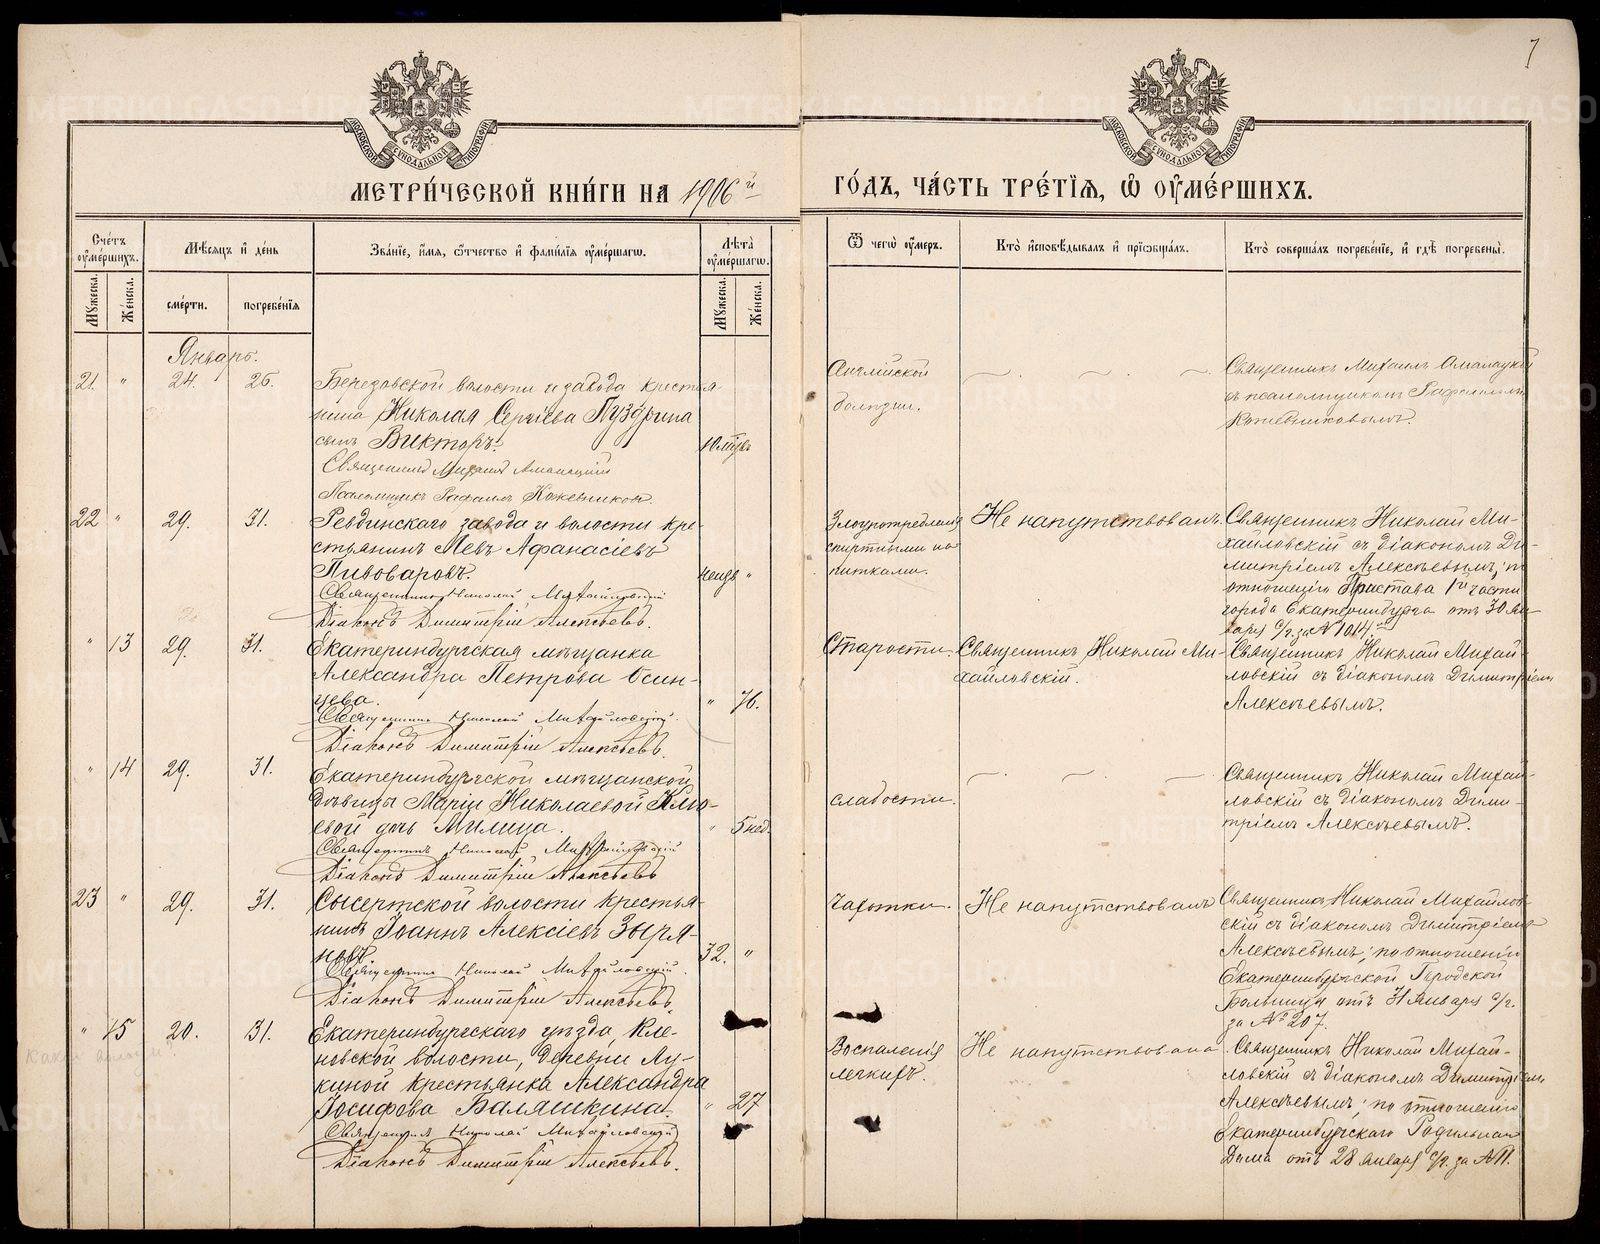 7
МОСКОВСКОЙ СѴНОДАЛЬНОЙ ТИПОГРАФІИ
МОСКОВСКОЙ СѴНОДАЛЬНОЙ ТИПОГРАФІИ
МЕТРИ́ЧЕСКОЙ КНИ́ГИ НА 1906й
ГО́ДЪ, ЧА́СТЬ ТРЕ́ТІѦ, Ѡ ОУМЕ́РШИХЪ.
Счетъ оумершихъ.
Мѣсяцъ и день
Званіе, имя, отчество и фамилія оумершагѡ.
Лѣта оумершагѡ.
Ѿ чегѡ оумеръ.
Кто исповѣдывалъ и пріѡбщалъ.
Кто совершалъ погребеніе, и гдѣ погребены.
Мужеска.
Женска.
смерти.
погребенія
Мужеска.
Женска.
Январь.
21. " 24. 26.
Березовской волости и завода крестья
нина Николая Сергіева Пуздрина
сынъ Викторъ.
10 мѣс.
Священникъ Михаилъ
Псаломщикъ Рафаилъ Кожевниковъ.
Англійской
болѣзни.
Священникъ Михаилъ
съ псаломщикомъ Рафаиломъ
Кожевниковымъ.
22 " 29. 31.
Ревдинскаго завода и волости кре-
стьянинъ Левъ Аѳанасіевъ
Пивоваровъ.
Священникъ Николай Михайловскій
Діаконъ Димитрій Алексѣевъ.
Злоупотребленія
спиртными на
питками.
Не напутствованъ.
Священникъ Николай Ми-
хайловскій съ діакономъ Ди-
митріемъ Алексѣевымъ; по
отношенію Пристава 1й части
города Екатеринбурга отъ 30 Ян-
варя с/г. за № 1014.
" 13 29. 31.
Екатеринбургская мѣщанка
Александра Петрова Осин-
цева.
" 76.
Священникъ Николай Михайловскій.
Діаконъ Димитрій Алексѣевъ.
Старости.
Священникъ Николай Ми-
хайловскій.
Священникъ Николай Михай-
ловскій съ діакономъ Димитріемъ
Алексѣевымъ.
" 14 29. 31.
Екатеринбургской мѣщанской
дѣвицы Маріи Николаевой
дочь Милица.
" 5 нед.
Священникъ Николай Михайловскій
Діаконъ Димитрій Алексѣевъ
слабости.
Священникъ Николай Михай-
ловскій съ діакономъ Дими-
тріемъ Алексѣевымъ.
23 " 29. 31.
Сысертской волости крестья-
нинъ Іоаннъ Алексіевъ Зыря-
новъ
32. "
Священникъ Николай Михайловскій.
Діаконъ Димитрій Алексѣевъ.
Чахотки.
Не напутствованъ
Священникъ Николай Михайлов-
скій съ діакономъ Димитріемъ
Алексѣевымъ; по отношенію
Екатеринбургской Городской
Больницы отъ 31 Января с/г.
за № 207.
" 15 20. 31.
Екатеринбургскаго уѣзда, Кле-
новской волости, деревни Лу-
киной крестьянка Александра
Іосифова Баляшкина.
" 27
Священникъ Николай Михайловскій
Діаконъ Димитрій Алексѣевъ.
Воспаленія
легкихъ.
Не напутствована
Священникъ Николай Михай-
ловскій съ діакономъ Димитріемъ
Алексѣевымъ; по отношенію
Екатеринбургскаго Родильнаго
Дома отъ 28 Января с/г. за № 11.
METRIKI.GASO-URAL.RU